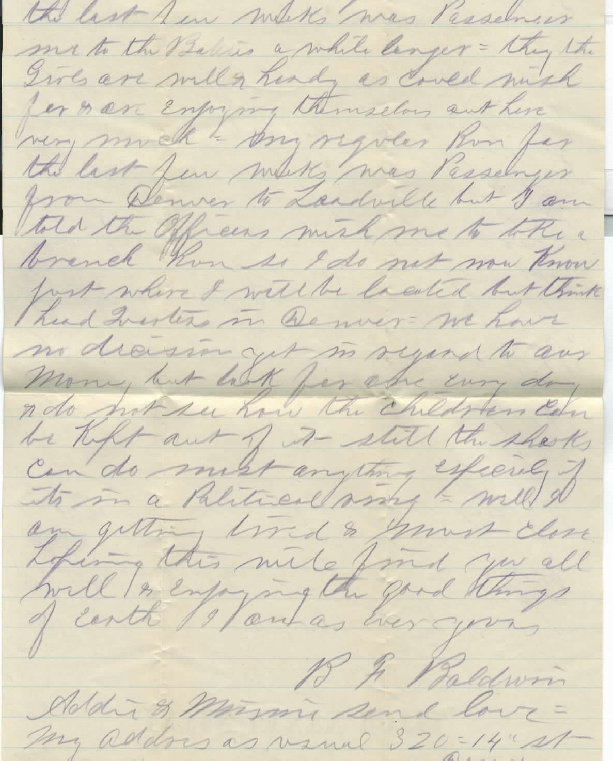 the last few weeks was Passenger
me to the Babies a while longer = they the
Girls are well & hearty as could wish
for & are Enjoying themselves out here
very much = my regular Run for
the last few weeks was Passenger
from Denver to Leadville but I am
told the Officers wish me to take a
branch Run so I do not now Know
just where I will be located but think
head Quarters in Denver = we have
no decision yet in regard to our
Money but look for one every day
& do not see how the children can
be Kept out of it - still the sharks
can do most anything especially if
its in a Political way = well I
am getting tired & must close
hopeing this will find you all
well & Enjoying the good things
of Earth I am as ever yours
B F Baldwin
Addie & Minnie send love =
My address as usual 320 = 14" st